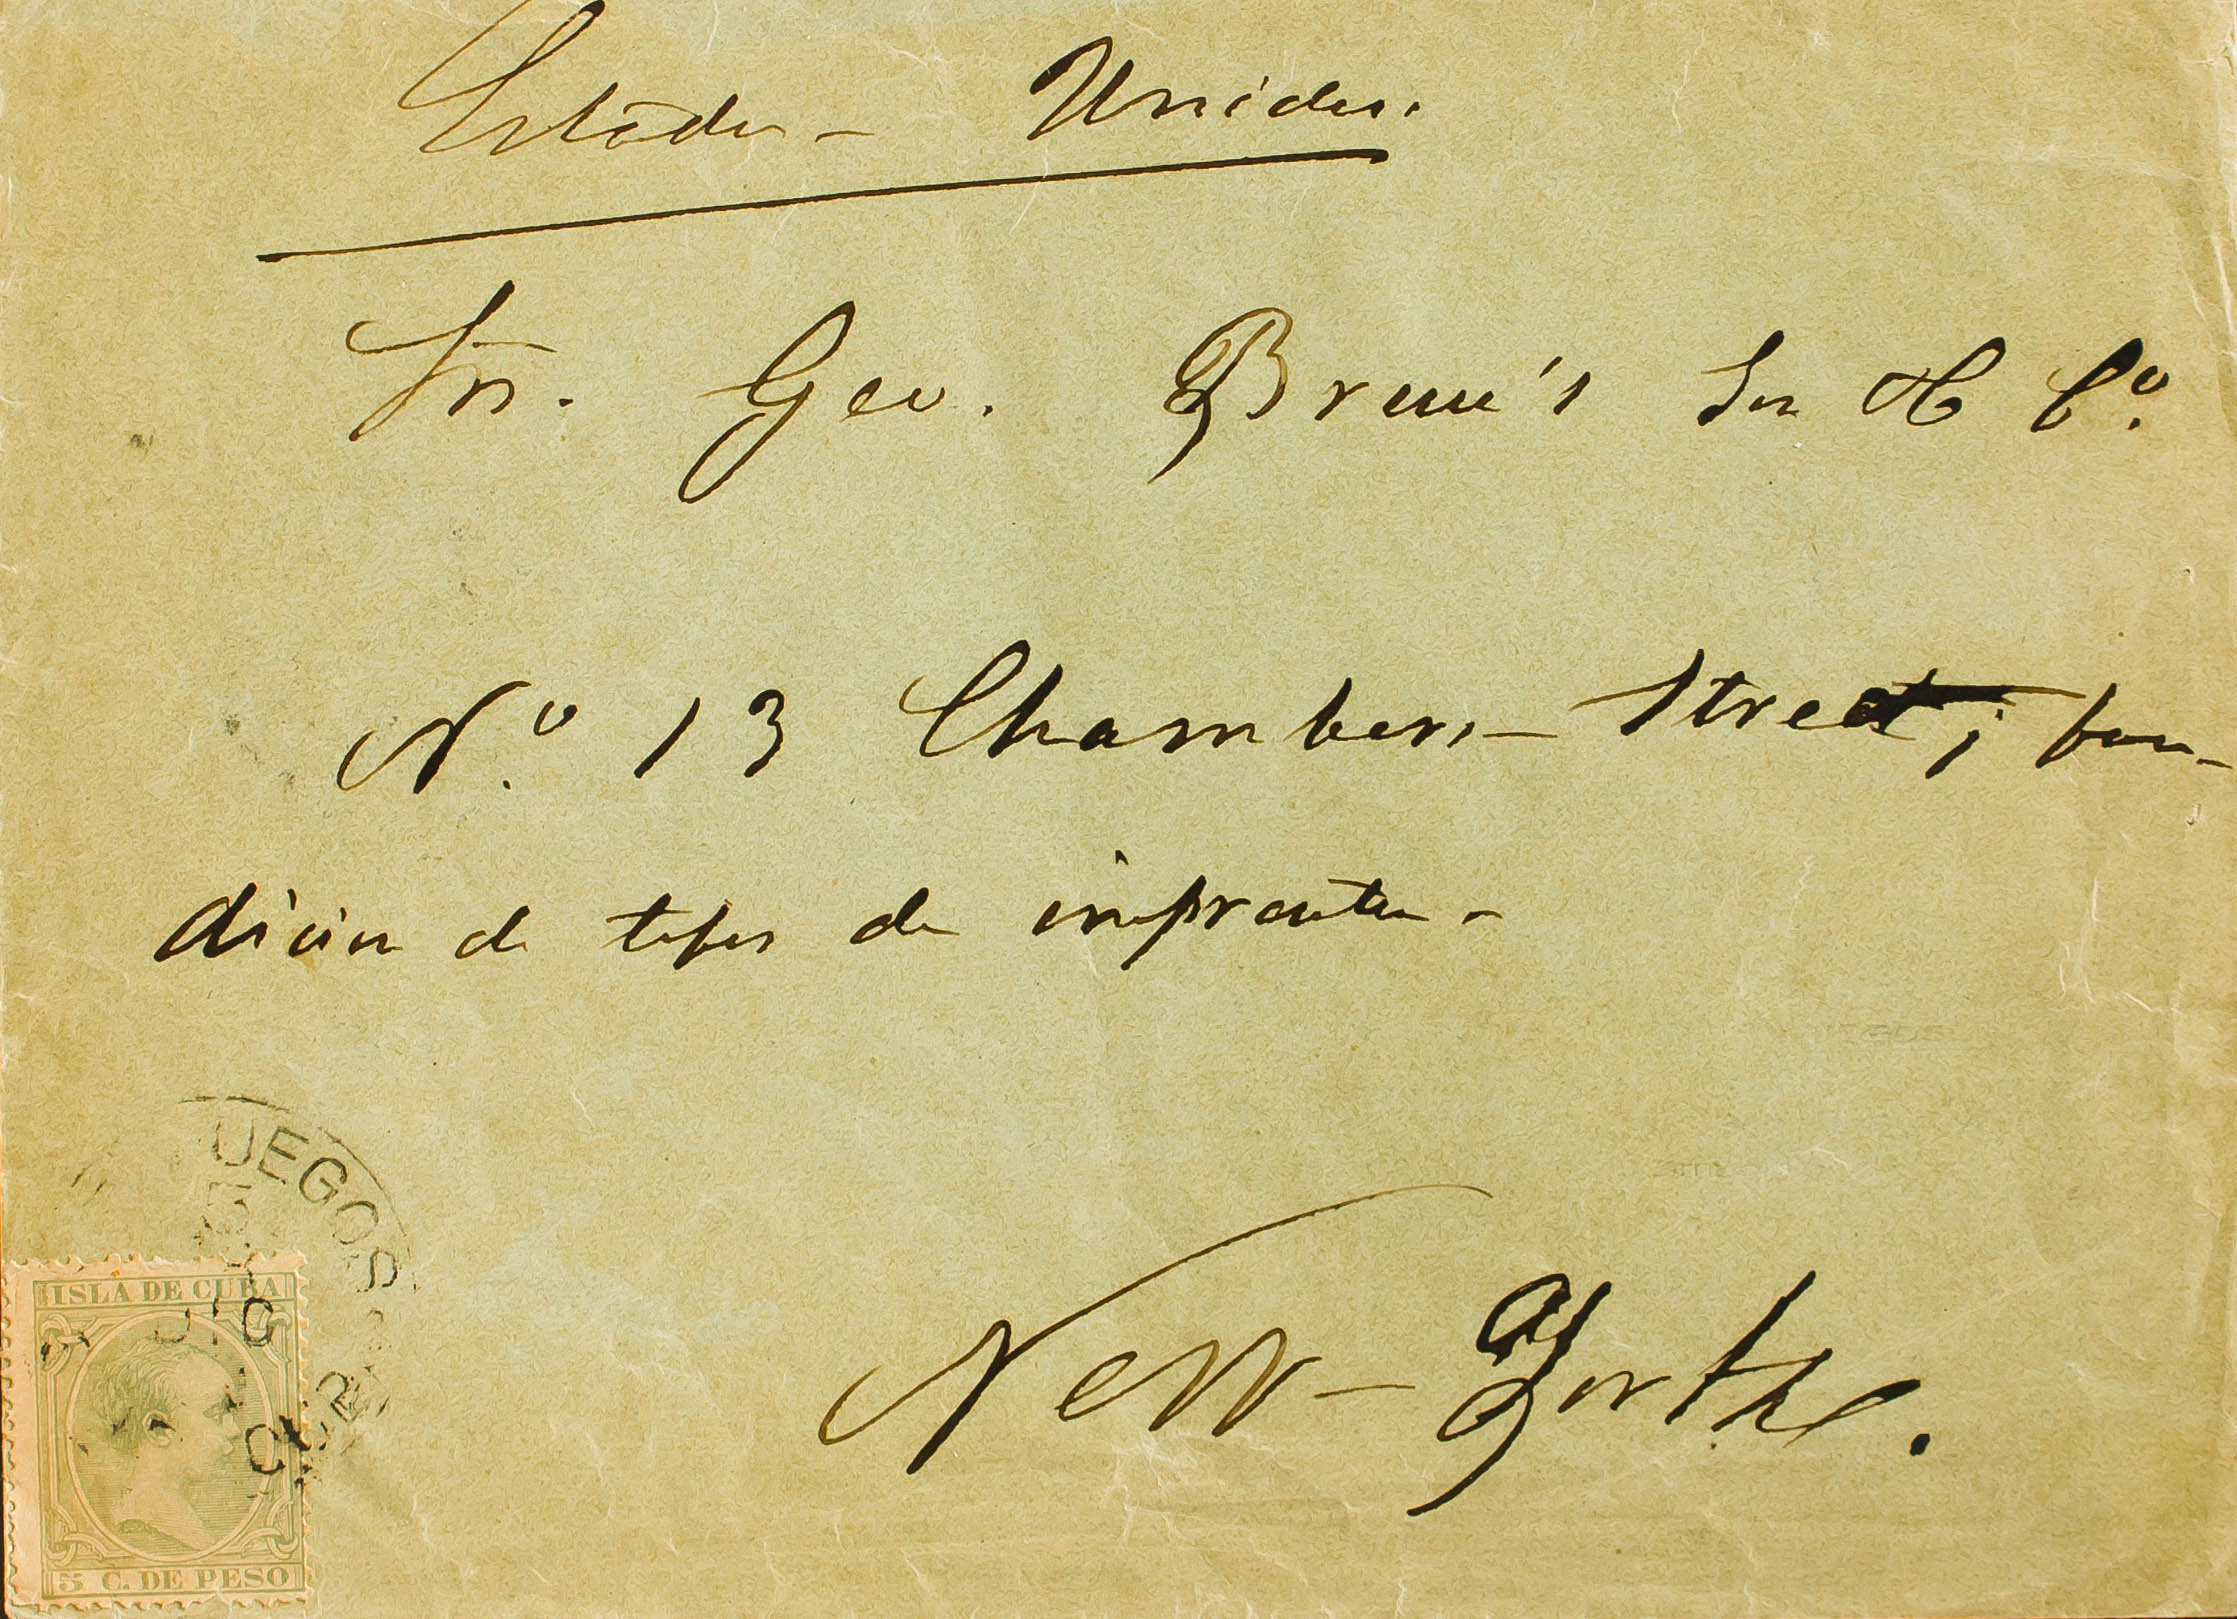 Estados - Unidos.
Sr. Geo. Bruce's Son & Co.
No. 13 Chambers - Street, fun-
dición de tipos de imprenta -
New - York.
UEGOS
ISLA DE CUBA
5 C. DE PESO